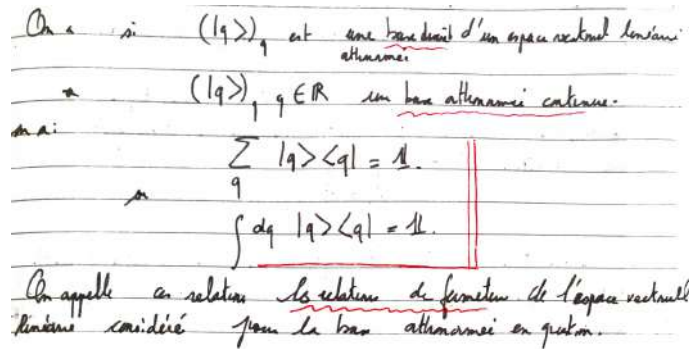 On a si (|q>)_q est une base discrèt d'un espace vectoriel linéaire
othonormée
ou (|q>)_q q ∈ ℝ une base othonormée continue.
on a:
∑_q |q><q| = 𝟙.
ou
∫ dq |q><q| = 𝟙.
On appelle ces relations les relations de fermeture de l'espace vectoriel
linéaire considéré pour la base othonormée en question.